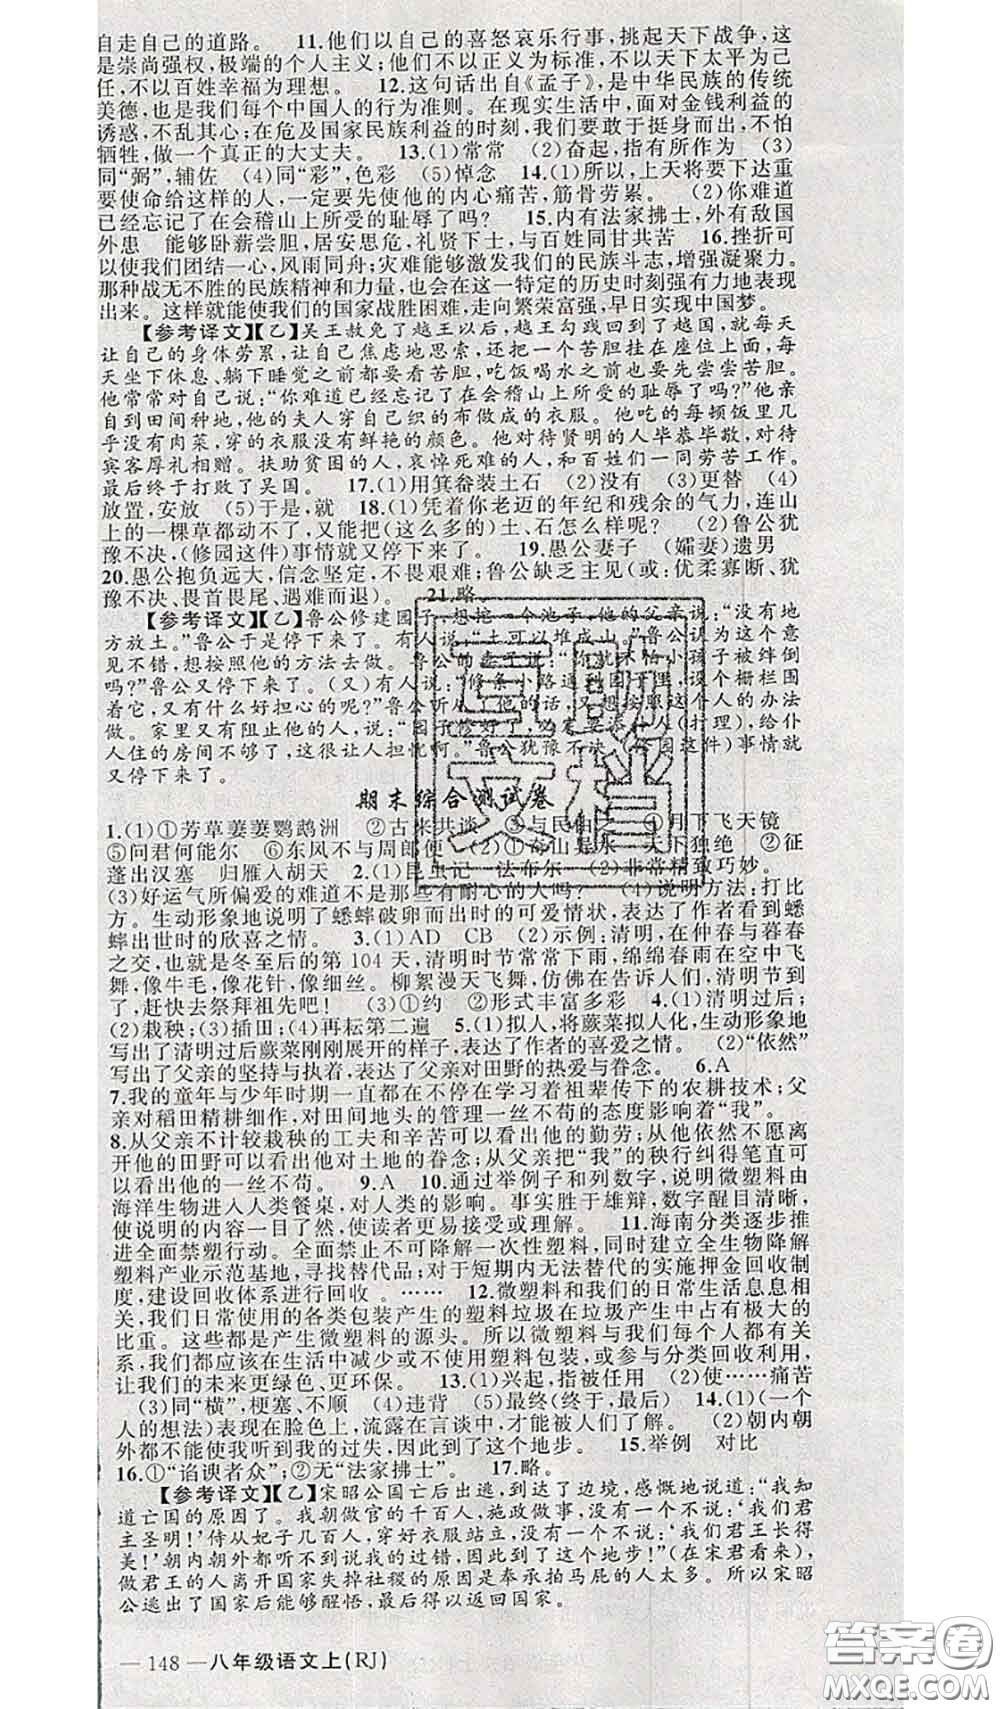 自走自己的道路。 11.他们以自己的喜怒哀乐行事,挑起天下战争,这
是崇尚强权,极端的个人主义;他们不以正义为标准,不以天下太平为己
任,不以百姓幸福为理想。 12.这句话出自《孟子》,是中华民族的传统
美德,也是我们每个中国人的行为准则。在现实生活中,面对金钱利益的
诱惑,不乱其心;在危及国家民族利益的时刻,我们要敢于挺身而出,不怕
牺牲,做一个真正的大丈夫。 13.(1)常常 (2)奋起,指有所作为 (3)
同“弼”,辅佐 (4)同“彩”,色彩 (5)悼念 14.(1)所以,上天将要下达重
要使命给这样的人,一定要先使他的内心痛苦,筋骨劳累。 (2)你难道
已经忘记了在会稽山上所受的耻辱了吗? 15.内有法家拂士,外有敌国
外患 能够卧薪尝胆,居安思危,礼贤下士,与百姓同甘共苦 16.挫折可
以使我们团结一心,风雨同舟;灾难能够激发我们的民族斗志,增强凝聚力。
那种战无不胜的民族精神和力量,也会在这一特定的历史时刻强有力地表现
出来。这样就能使我们的国家战胜困难,走向繁荣富强,早日实现中国梦。
【参考译文】【乙】吴王赦免了越王以后,越王勾践回到了越国,就每天
让自己的身体劳累,让自己焦虑地思索,还把一个苦胆挂在座位上面,每
天坐下休息、躺下睡觉之前都要看看苦胆,吃饭喝水之前也要先尝尝苦胆。
他常常对自己说:“你难道已经忘记了在会稽山上所受的耻辱了吗?”他亲
自到田间种地,他的夫人穿自己织的布做成的衣服。他吃的每顿饭里几
乎没有肉菜,穿的衣服没有鲜艳的颜色。他对待贤明的人毕恭毕敬,对待
宾客厚礼相赠。扶助贫困的人,哀悼死难的人,和百姓们一同劳苦工作。
最后终于打败了吴国。 17.(1)用箕畚装土石 (2)没有 (3)更替 (4)
放置,安放 (5)于是,就 18.(1)凭着你老迈的年纪和残余的气力,连山
上的一棵草都动不了,又能把(这么多的)土、石怎么样呢? (2)鲁公犹
豫不决,(修园这件)事情就又停下来了。 19.愚公妻子 (孀妻)遗男
20.愚公抱负远大,信念坚定,不畏艰难;鲁公缺乏主见(或:优柔寡断、犹
豫不决、畏首畏尾、遇难而退)。 21.略
【参考译文】【乙】鲁公修建园子,想挖一个池子,他的父亲说:“没有地
方放土。”鲁公于是停下来了。有人说:“土可以堆成山。”鲁公认为这个意
见不错,想按照他的方法去做。鲁公的妻子说:“你就不怕小孩子被绊倒
吗?”鲁公又停下来了。(又)有人说:“修条小路通到园子里,设个栅栏围
着它,又有什么好担心的呢?”鲁公听从了他的话,又想按照这个人的办法
做。家里又有阻止他的人,说:“园子修好了,必定要添佣人(打理),给仆
人住的房间不够了,这很让人担忧啊。”鲁公犹豫不决,(修园这件)事情就
又停下来了。
期末综合测试卷
1.(1)①芳草萋萋鹦鹉洲 ②古来共谈 ③与民由之 ④月下飞天镜
⑤问君何能尔 ⑥东风不与周郎便 (2)①奇山异水 天下独绝 ②征
蓬出汉塞 归雁入胡天 2.(1)昆虫记 法布尔 (2)非常精致巧妙。
(3)好运气所偏爱的难道不是那些有耐心的人吗? (4)说明方法:打比
方。生动形象地说明了蟋蟀破卵而出时的可爱情状,表达了作者看到蟋
蟀出世时的欣喜之情。 3.(1)AD CB (2)示例:清明,在仲春与暮春
之交,也就是冬至后的第 104 天,清明时节常常下雨,绵绵春雨在空中飞
舞,像牛毛,像花针,像细丝。柳絮漫天飞舞,仿佛在告诉人们,清明节到
了,赶快去祭拜祖先吧! (3)①约 ②形式丰富多彩 4.(1)清明过后;
(2)栽秧;(3)插田;(4)再耘第二遍 5.(1)拟人,将蕨菜拟人化,生动形象地
写出了清明过后蕨菜刚刚展开的样子,表达了作者的喜爱之情。 (2)“依然”
写出了父亲的坚持与执着,表达了父亲对田野的热爱与眷念。 6.A
7.我的童年与少年时期一直都在不停在学习着祖辈传下的农耕技术;父
亲对稻田精耕细作,对田间地头的管理一丝不苟的态度影响着“我”。
8.从父亲不计较栽秧的工夫和辛苦可以看出他的勤劳;从他依然不愿离
开他的田野可以看出他对土地的眷念;从父亲把“我”的秧行纠得笔直可
以看出他的一丝不苟。 9.A 10.通过举例子和列数字,说明微塑料由
海洋生物进入人类餐桌,对人类的影响。事实胜于雄辩,数字醒目清晰,
使说明的内容一目了然,使读者更易接受或理解。 11.海南分类逐步推
进全面禁塑行动。全面禁止不可降解一次性塑料,同时建立全生物降解
塑料产业示范基地,寻找替代品;对于短期内无法替代的实施押金回收制
度,建设回收体系进行回收 。…… 12.微塑料和我们的日常生活息息相
关,我们日常使用的各类包装产生的塑料垃圾在垃圾产生中占有极大的
比重。这些都是产生微塑料的源头。所以微塑料与我们每个人都有关
系,我们都应该在生活中减少或不使用塑料包装,或参与分类回收利用,
让我们的未来更绿色、更环保。 13.(1)兴起,指被任用 (2)使……痛苦
(3)同“横”,梗塞、不顺 (4)违背 (5)最终(终于,最后) 14.(1)(一个
人的想法)表现在脸色上,流露在言谈中,才能被人们了解。 (2)朝内朝
外都不能使我听到我的过失,因此到了这个地步。 15.举例 对比
16.①“谄谀者众”;②无“法家拂士”。 17.略。
【参考译文】【乙】宋昭公国亡后出逃,到达了边境,感慨地说道:“我知
道亡国的原因了。我朝做官的千百人,施政做事,没有一个不说:‘我们君
主圣明!’侍从妃子几百人,穿好衣服站立,没有一个不说:‘我们君王长得
美!’朝内朝外都听不到说我的过错,因此到了这个地步!”(在宋君看来),
做君王的人离开国家失掉社稷的原因是奉承拍马屁的人太多。所以宋昭
公逃出了国家后能够醒悟,最后得以返回国家。
— 148 —八年级语文上(RJ)
互助文档
答案圈
MXQE.COM